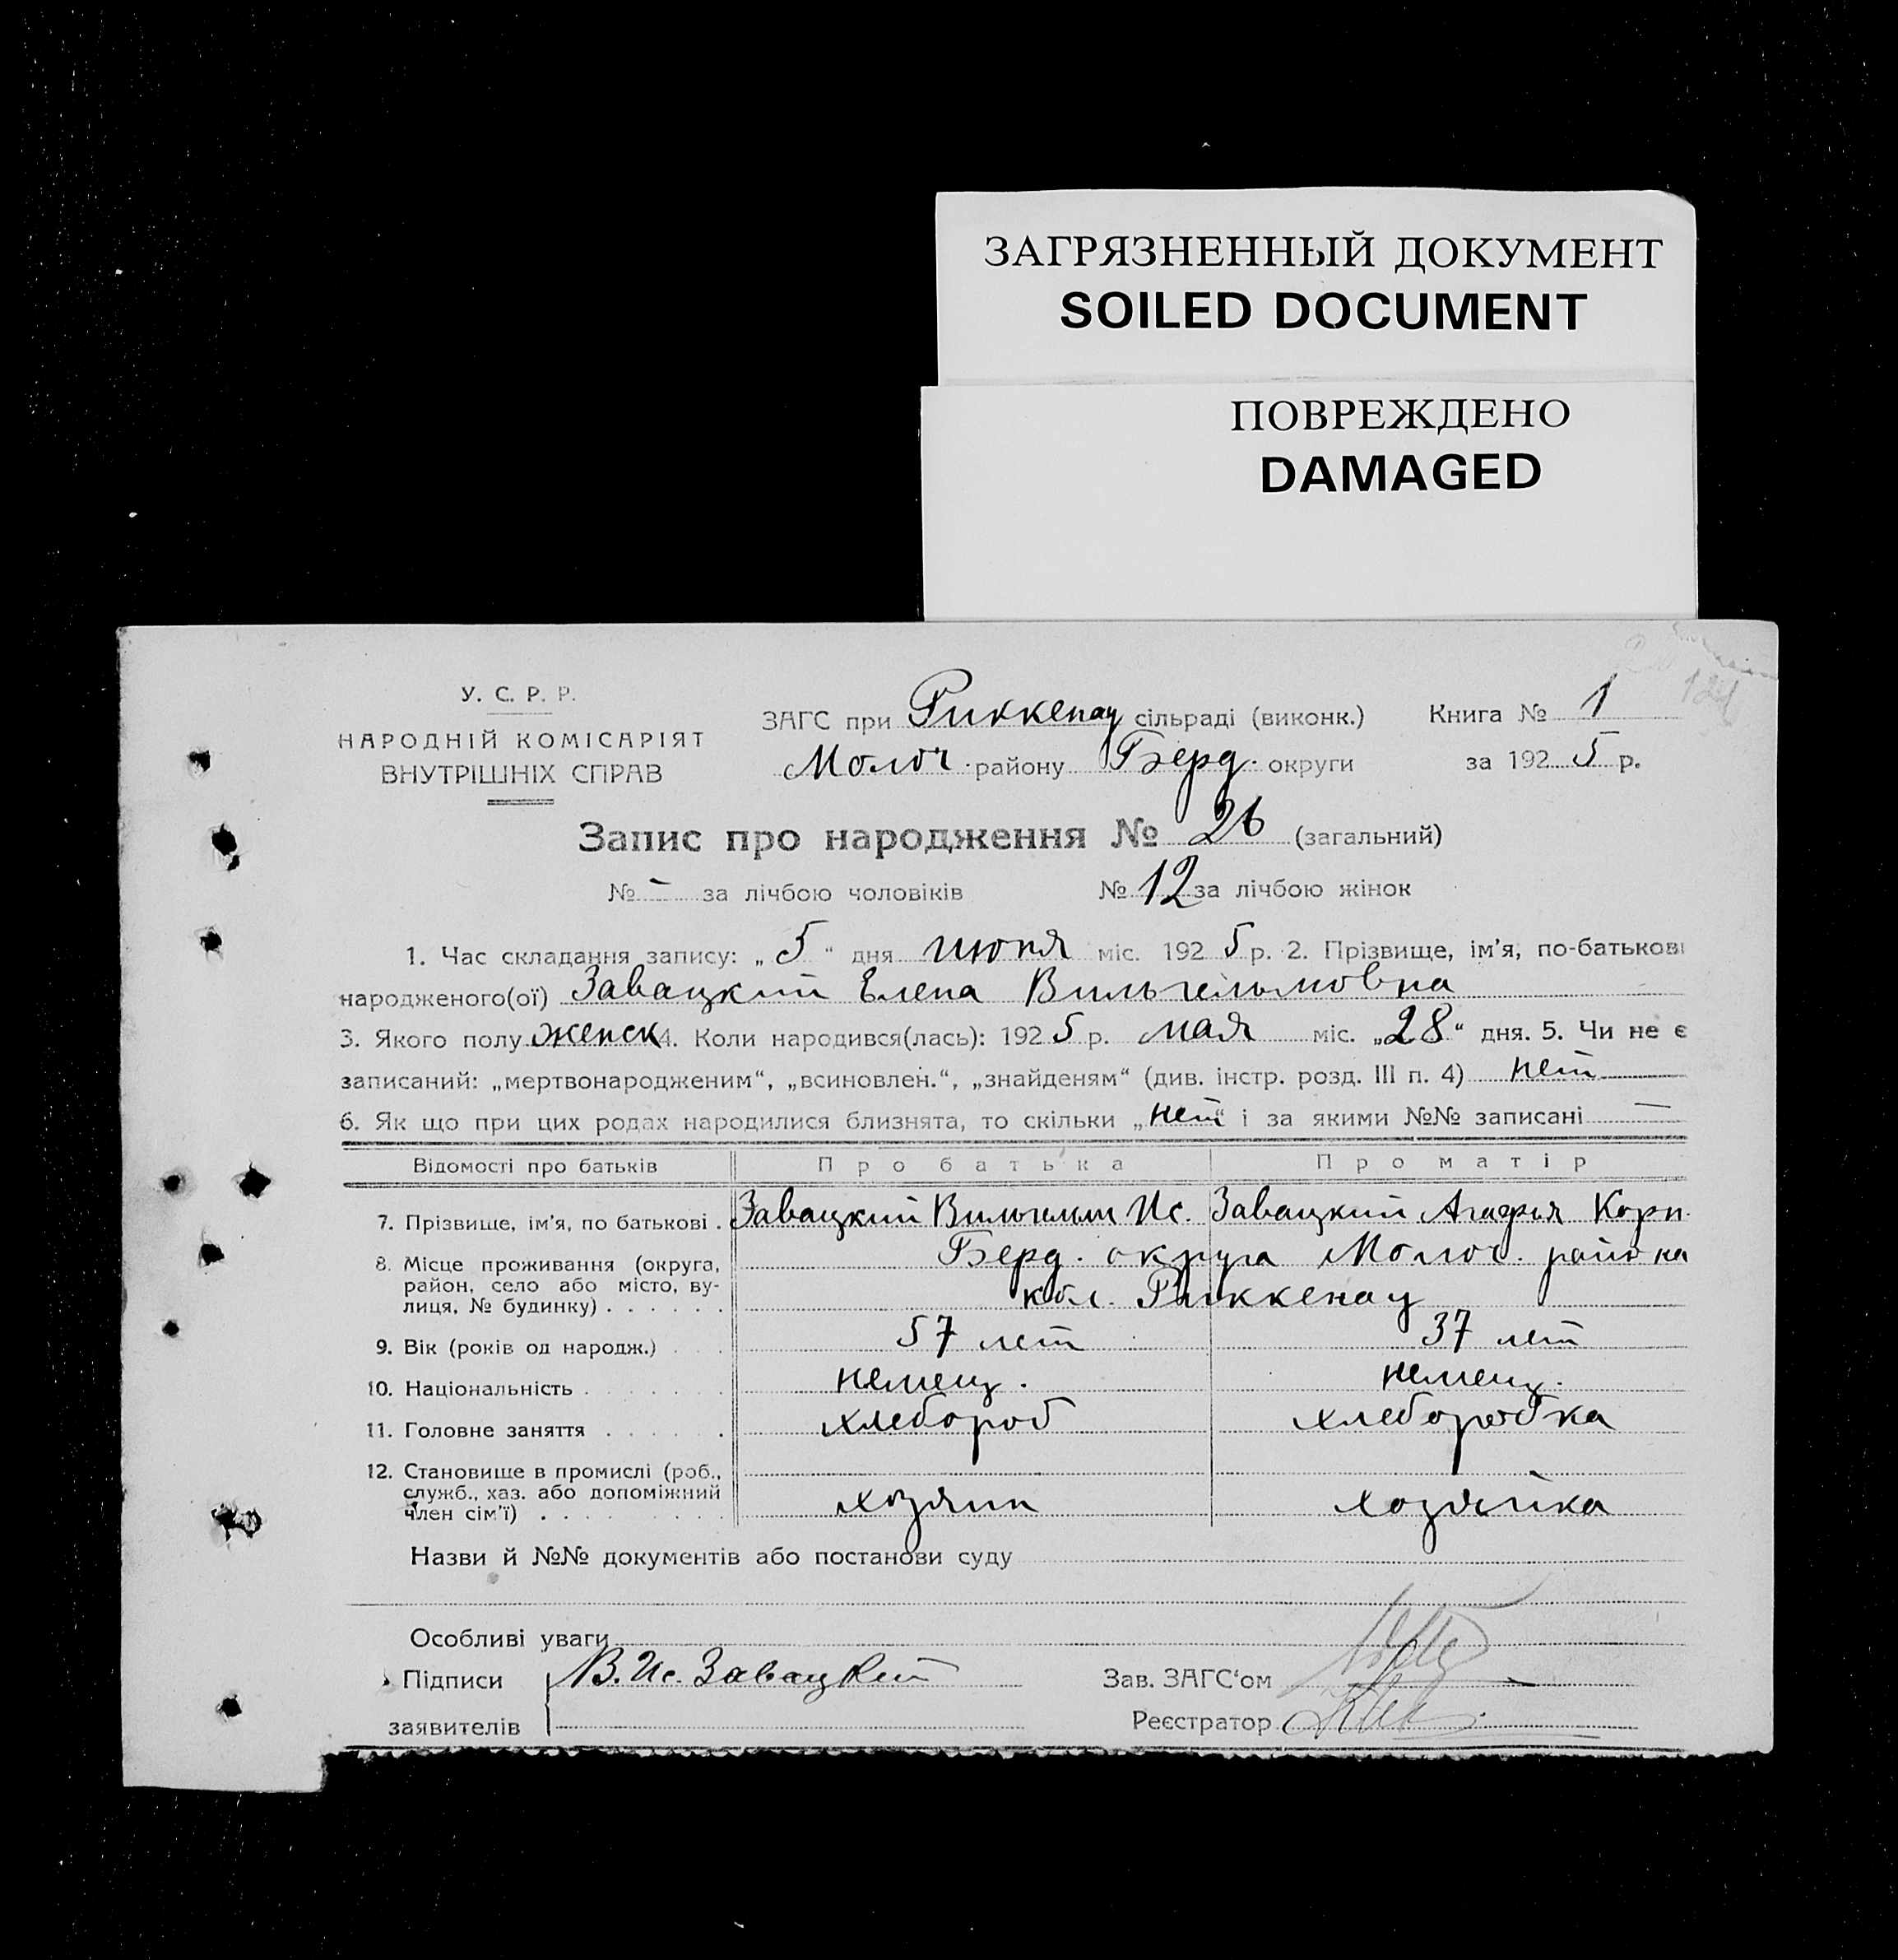 ЗАГРЯЗНЕННЫЙ ДОКУМЕНТ
SOILED DOCUMENT
ПОВРЕЖДЕНО
DAMAGED
У. С. Р. Р.
НАРОДНІЙ КОМІСАРІЯТ
ВНУТРІШНІХ СПРАВ
ЗАГС при Риккенау сільраді (виконк.) Книга № 1
Молоч. району Берд. округи за 1925 р.
Запис про народження № 26 (загальний)
№ - за лічбою чоловіків № 12 за лічбою жінок
1. Час складання запису: „5“ дня июня міс. 1925 р. 2. Прізвище, ім’я, по-батькові
народженого(ої) Завацкий Елена Вильгельмовна
3. Якого полу женск 4. Коли народився(лась): 1925 р. мая міс. „28“ дня. 5. Чи не є
записаний: „мертвонародженим“, „всиновлен.“, „знайденям“ (див. інстр. розд. III п. 4) нет
6. Як що при цих родах народилися близнята, то скільки „нет“ і за якими №№ записані —
Відомості про батьків Про батька Про матір
7. Прізвище, ім’я, по батькові . Завацкий Вильгельм Ис. Завацкий Агафья Корн.
8. Місце проживання (округа, Берд. округа Молоч. района
район, село або місто, ву-
лиця, № будинку) . . . . . . кол. Риккенау
9. Вік (років од народж.) . . . 57 лет 37 лет
10. Національність . . . . . . . немец. немец.
11. Головне заняття . . . . . . хлебороб хлеборобка
12. Становище в промислі (роб.,
служб., хаз. або допоміжний
член сім’ї) . . . . . . . . . хозяин хозяйка
Назви й №№ документів або постанови суду
Особливі уваги
Підписи В. Ис. Завацкий Зав. ЗАГС‘ом
заявителів Реєстратор